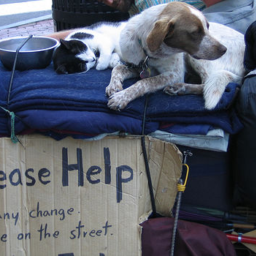 ease Help
any change
e on the street.